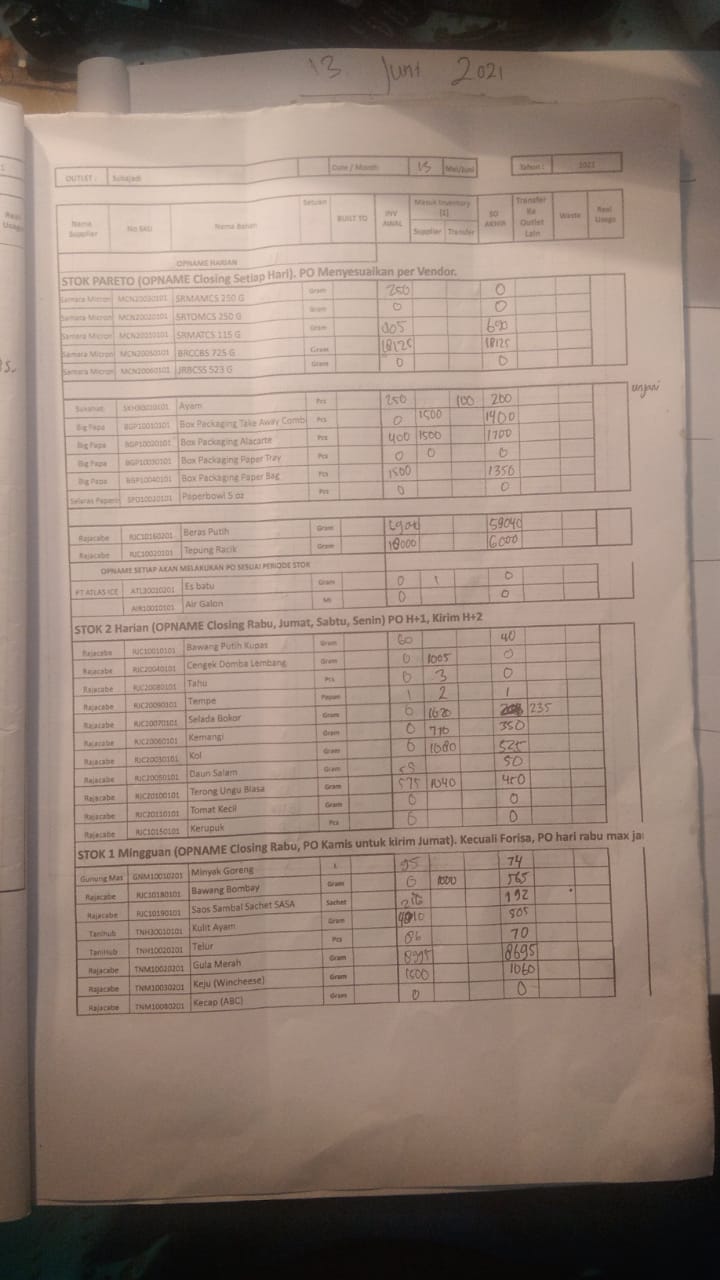 13 Juni 2021
OUTLET : Sukajadi Date / Month 13 Mei/Juni Tahun : 2021
Nama Supplier No SKU Nama Bahan Satuan BUILT TO INV AWAL Masuk Inventory (1) Supplier Transfer SO AKHIR Transfer Ke Outlet Lain Waste Real Usage
OPNAME HARIAN
STOK PARETO (OPNAME Closing Setiap Hari). PO Menyesuaikan per Vendor.
Samara Micron MCN20030101 SRMAMCS 250 G Gram 250 0
Samara Micron SRTOMCS 250 G Gram 0 0
Samara Micron SRMATCS 115 G Gram 690
Samara Micron MCN20050101 BRCCBS 725 G Gram 18125 18125
Samara Micron MCN20060101 JRBCSS 523 G Gram 0 0
Ayam Pcs 250 100 200
Big Papa BGP10010101 Box Packaging Take Away Comb Pcs 0 1500 1400
Big Papa BGP10020101 Box Packaging Alacarte Pcs 400 1500 1700
Big Papa BGP10030101 Box Packaging Paper Tray Pcs 0 0 0
Big Papa BGP10040101 Box Packaging Paper Bag Pcs 1500 1350
Selaras Paperi SPO10010101 Paperbowl 5 oz Pcs 0 0
Rajacabe RJC10160201 Beras Putih Gram 59040
Rajacabe RJC10020101 Tepung Racik Gram 18000 6000
OPNAME SETIAP AKAN MELAKUKAN PO SESUAI PERIODE STOK
PT ATLAS ICE ATL10010201 Es batu Gram 0 1 0
AIR10010101 Air Galon Ml 0 0
STOK 2 Harian (OPNAME Closing Rabu, Jumat, Sabtu, Senin) PO H+1, Kirim H+2
Rajacabe RJC10010101 Bawang Putih Kupas Gram 60 40
Rajacabe RJC20040101 Cengek Domba Lembang Gram 0 1005 0
Rajacabe RJC20080101 Tahu Pcs 0 3 0
Rajacabe RJC20090101 Tempe Papan 1 2 1
Rajacabe RJC20070101 Selada Bokor Gram 0 1620 235
Rajacabe RJC20060101 Kemangi Gram 0 770 350
Rajacabe RJC20030101 Kol Gram 0 1080 525
Rajacabe RJC20050101 Daun Salam Gram 50
Rajacabe RJC20100101 Terong Ungu Biasa Gram 575 1040 450
Rajacabe RJC20110101 Tomat Kecil Gram 0 0
Rajacabe RJC10150101 Kerupuk Pcs 0 0
STOK 1 Mingguan (OPNAME Closing Rabu, PO Kamis untuk kirim Jumat). Kecuali Forisa, PO hari rabu max ja
Gunung Mas GNM10010201 Minyak Goreng L 95 74
Rajacabe RJC10180101 Bawang Bombay Gram 0 1000 565
Rajacabe RJC10190101 Saos Sambal Sachet SASA Sachet 192
Tanihub TNH30010101 Kulit Ayam Gram 505
Tanihub TNH10020201 Telur Pcs 86 70
Rajacabe TNM10020201 Gula Merah Gram 8695
Rajacabe TNM10030201 Keju (Wincheese) Gram 1500 1060
Rajacabe TNM10080201 Kecap (ABC) Gram 0 0